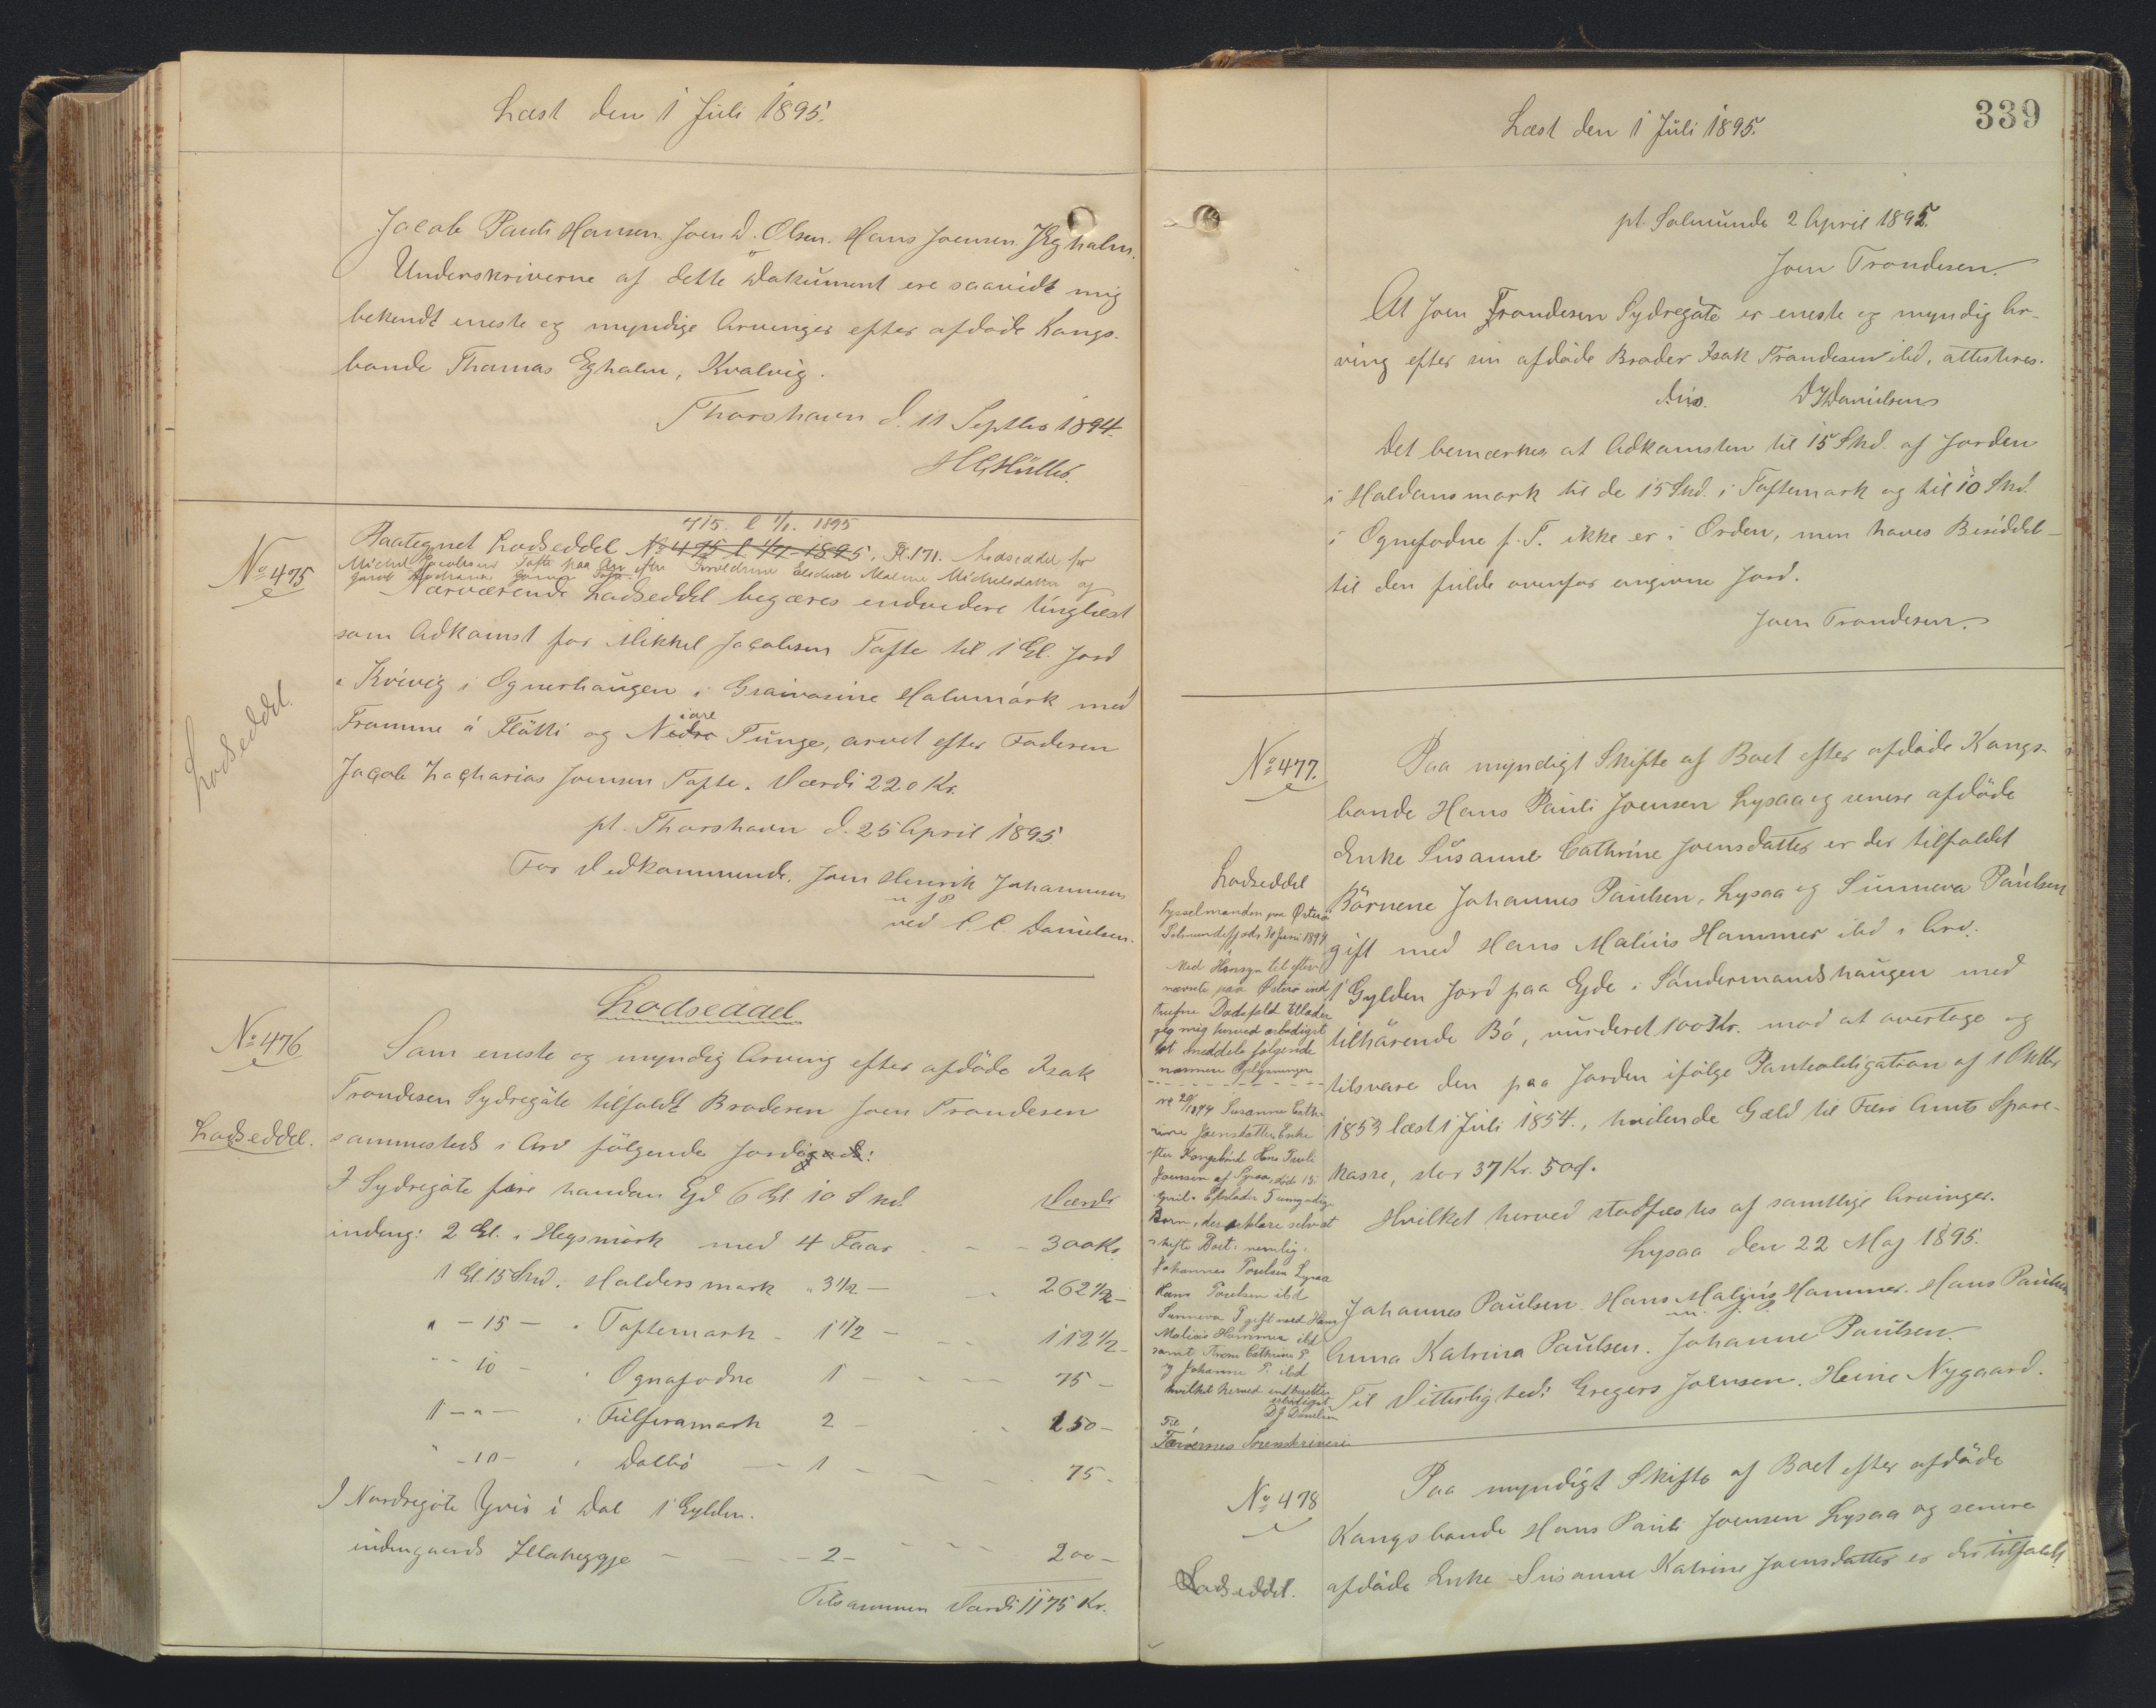 Læst den 1 Juli 1895.
Jacob Pauli Hansen. Joen D. Olsen. Hans Joensen. Egholm.
Underskriverne af dette Dokument ere saavidt mig
bekendt eneste og myndige Arvinger efter afdøde Kongs-
bonde Thomas Egholm, Kvalvig.
Thorshavn d. 11 Septbr 1894.
H C Müller.
No 475
715. l 1/7. 1895
Paategnet Lodseddel No 475 l 1/7 1895, Pr. 171. Lodseddel for
Michel Jacobsen Tofte paa Arv efter Forældrene Elsebeth Malene Michelsdatter og
Jacob Zacharias Joensen Tofte.
Nærværende Lodseddel begæres endvidere tinglæst
som Adkomst for Mikkel Jacobsen Tofte til 1 Gl. Jord
i Kvivig i Ognerhaugen i Graivarine Halvmark med
Fromme á Flötti og Nedre iare Tunge, arvet efter Faderen
Jacob Zacharias Joensen Tofte. Værdi 220 Kr.
pt. Thorshavn d. 25 April 1895.
For Vedkommende. Joen Henrik Johannesen
m f P
ved C. C. Danielsen.
Lodseddel.
Lodseddel
No 476
Som eneste og myndig Arving efter afdøde Isak
Trondesen Sydregøte tilfaldt Broderen Joen Trondesen
Lodseddel.
sammesteds i Arv følgende Jordegods:
I Sydregøte fire handan Ejd 6 Gl 10 Skd. Værdi
inding: 2 Gl. i Hegsmörk med 4 Faar - - 300 Kr.
1 Gl. 15 Skd. Halders mark " 3 1/2 - - 262 1/2 -
" - 15 - " Toftemark - 1 1/2 - - 112 1/2 -
" - 10 - " Ognafodne 1 - - - 75 -
1 - " - i Fülferamark 2 - - 150 -
" - 10 - " Dalbö - 1 - - - 75 -
I Nordregøte Yvir i Dal 1 Gylden.
indengaards Illaheygje - - - 2 - - - 200 -
Tilsammen Værdi 1175 Kr.
339
Læst den 1 Juli 1895.
pt. Solmunde 2 April 1895.
Joen Trondesen.
At Joen Trondesen Sydregøte er eneste og myndig Ar-
ving efter sin afdøde Broder Isak Trondesen ibd, attesteres.
D. u. s. DJDanielsen
Det bemærkes at Adkomsten til 15 Skd. af Jorden
i Haldansmark til de 15 Skd. i Toftemark og til 10 Skd.
i Ognefodne p. T. ikke er i Orden, men haves Besiddel-
til den fulde ovenfor angivne Jord.
Joen Trondesen.
No 477.
Paa myndigt Skifte af Boet efter afdøde Kongs-
bonde Hans Pauli Joensen Lysaa og senere afdøde
Enke Susanne Cathrine Joensdatter er der tilfaldet
Børnene Johannes Paulsen, Lysaa og Sunneva Paulsen
gift med Hans Malius Hammer ibd i Arv:
1 Gylden Jord paa Ejde i Sándermandshaugen med
tilhørende Bö, vurderet 100 Kr. mod at overtage og
tilsvare den paa Jorden ifølge Pantobligation af 1 Oktbr
1853 læst 1 Juli 1854., hvilende Gæld til Færø Amts Spare-
kasse, stor 37 Kr. 50 Ø.
Hvilket herved stadfæstes af samtlige Arvinger.
Lysaa den 22 Maj 1895.
Johannes Paulsen. Hans Malius Hammer. Hans Paulsen
m. f. P.
Anna Katrina Paulsen. Johanne Paulsen.
Til Vitterlighed: Gregers Joensen. Heine Nygaard.
Lodseddel
Sysselmanden paa Østerø
Solmundefjord 30 Juni 1894
Med Hensyn til efter-
nævnte paa Østerø ind-
trufne Dødsfald tillader
jeg mig herved ærbødigst
at meddele følgende
nærmere Oplysninger
- - - - - - - - - -
nr 29/1894 Susanne Cath-
rine Joensdatter Enke
efter Kongsbonde Hans Pauli
Joensen af Lysaa, død 15
April. Efterlader 5 umyndige
Børn, der erklære selv at
skifte Boet: nemlig:
Johannes Poulsen Lysaa
Hans Poulsen ibd
Sunneva P gift med Hans
Malius Hammer ibd
samt Anna Cathrine P
og Johanne P. ibd
hvilket herved indberettes
ærbødigst
DJ Danielsen
Til
Færøernes Sorenskriveri
No 478
Lodseddel.
Paa myndigt Skifte af Boet efter afdøde
Kongsbonde Hans Pauli Joensen Lysaa og senere
afdøde Enke Susanne Katrine Joensdatter er der tilfaldt